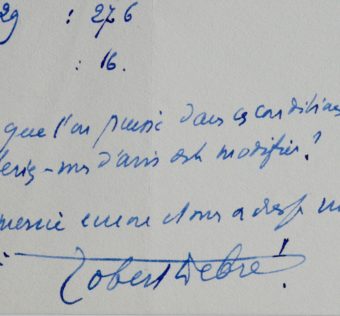 29 : 276
: 16.
que l'on puisse dans ces conditions
-vous d'avis de modifier ?
encore et vous adresse
Robert Debré